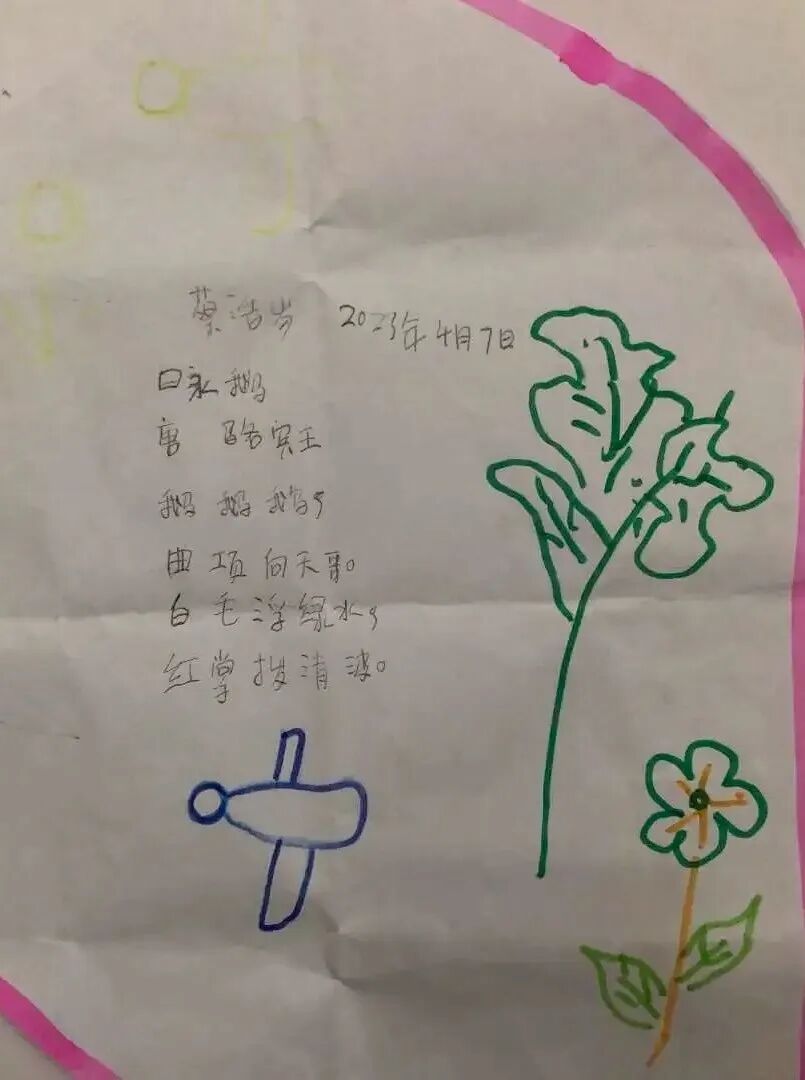 蔡浩岩 2023年4月7日
咏鹅
唐 骆宾王
鹅 鹅 鹅,
曲 项 向天哥。
白 毛 浮绿水,
红 掌 拨 清 波。